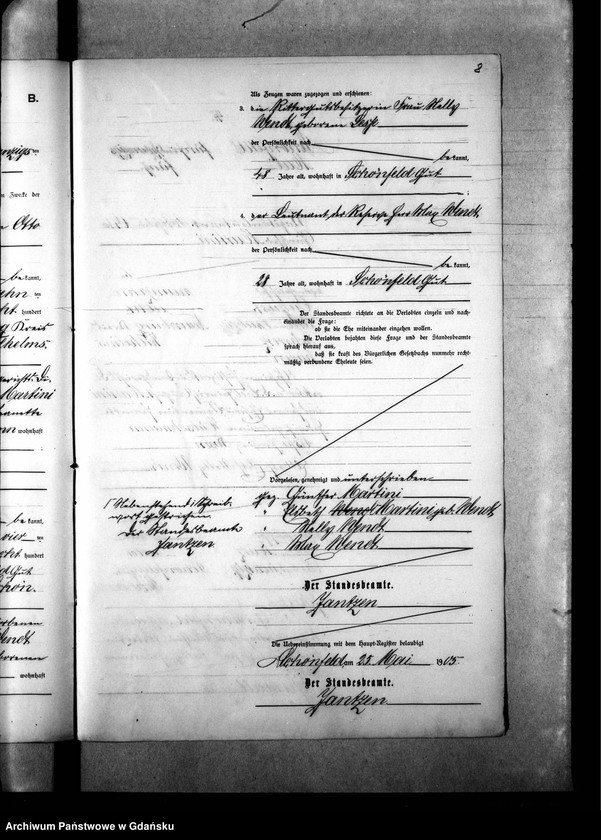 B.
Zwecke der
Otto
be kannt,
hundert
thelms
Martini
wohnhaft
be kannt,
hundert
Gut
wohnhaft
2
Als Zeugen waren zugezogen und erschienen:
3. die Rittergutsbesitzerin Frau Nelly
Wendt, geborene
der Persönlichkeit nach
be kannt,
48 Jahre alt, wohnhaft in Schönfeld Gut
;
4. der Leutnant der Reserve Herr Max Wendt,
der Persönlichkeit nach
be kannt,
28 Jahre alt, wohnhaft in Schönfeld Gut
Der Standesbeamte richtete an die Verlobten einzeln und nach-
einander die Frage:
ob sie die Ehe miteinander eingehen wollen.
Die Verlobten bejahten diese Frage und der Standesbeamte
sprach hierauf aus,
daß sie kraft des Bürgerlichen Gesetzbuchs nunmehr recht-
mäßig verbundene Eheleute seien.
Vorgelesen, genehmigt und unterschrieben
gez. Günther Martini
Wendt Martini geb. Wendt
" Nelly Wendt
" Max Wendt
1 Nebenstehend 1 Schreib-
wort gestrichen
Der Standesbeamte
Jantzen
Der Standesbeamte.
Jantzen
Die Uebereinstimmung mit dem Haupt-Register beglaubigt
Schönfeld am 25. Mai 1905.
Der Standesbeamte.
Jantzen
Archiwum Państwowe w Gdańsku